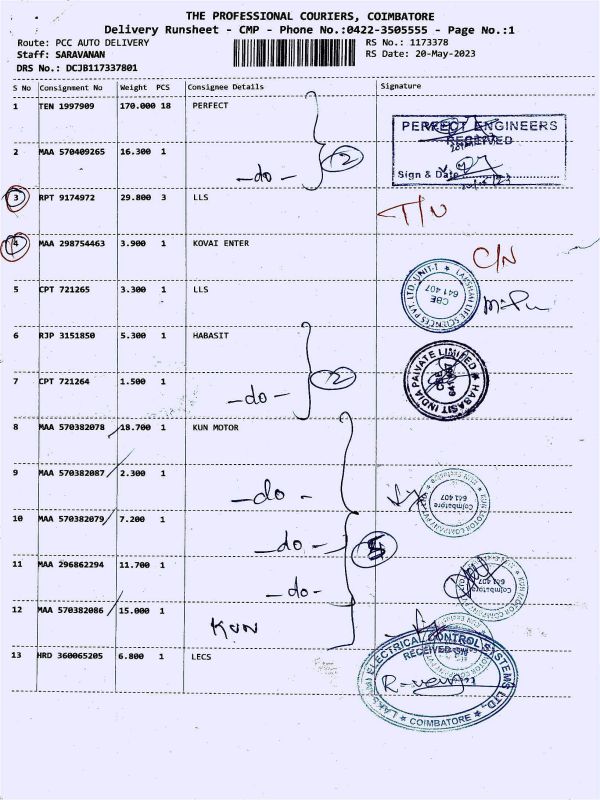 THE PROFESSIONAL COURIERS, COIMBATORE
Delivery Runsheet - CMP - Phone No.:0422-3505555 - Page No.:1
Route: PCC AUTO DELIVERY
RS No.: 1173378
Staff: SARAVANAN
RS Date: 20-May-2023
DRS No.: DCJB117337801
S No Consignment No Weight PCS Consignee Details Signature
1 TEN 1997909 170.000 18 PERFECT
PERFECT ENGINEERS
RECEIVED
Sign & Date
2 MAA 570409265 16.300 1 -do- 2
3 RPT 9174972 29.800 3 LLS
4 MAA 298754463 3.900 1 KOVAI ENTER C/N
5 CPT 721265 3.300 1 LLS
LAKSHMI LIFE SCIENCES PVT. LTD. UNIT-I
CBE
641 407
6 RJP 3151850 5.300 1 HABASIT
HABASIT INDIA PRIVATE LIMITED
7 CPT 721264 1.500 1 -do- 2
8 MAA 570382078 18.700 1 KUN MOTOR
9 MAA 570382087 2.300 1 -do-
KUN MOTOR COMPANY PVT LTD
Coimbatore
641407
10 MAA 570382079 7.200 1 -do- 5
11 MAA 296862294 11.700 1 -do-
Coimbatore
641407
12 MAA 570382086 15.000 1 KUN
13 HRD 360065205 6.800 1 LECS
LAKSHMI ELECTRICAL CONTROL SYSTEMS LTD.,
RECEIVED
COIMBATORE